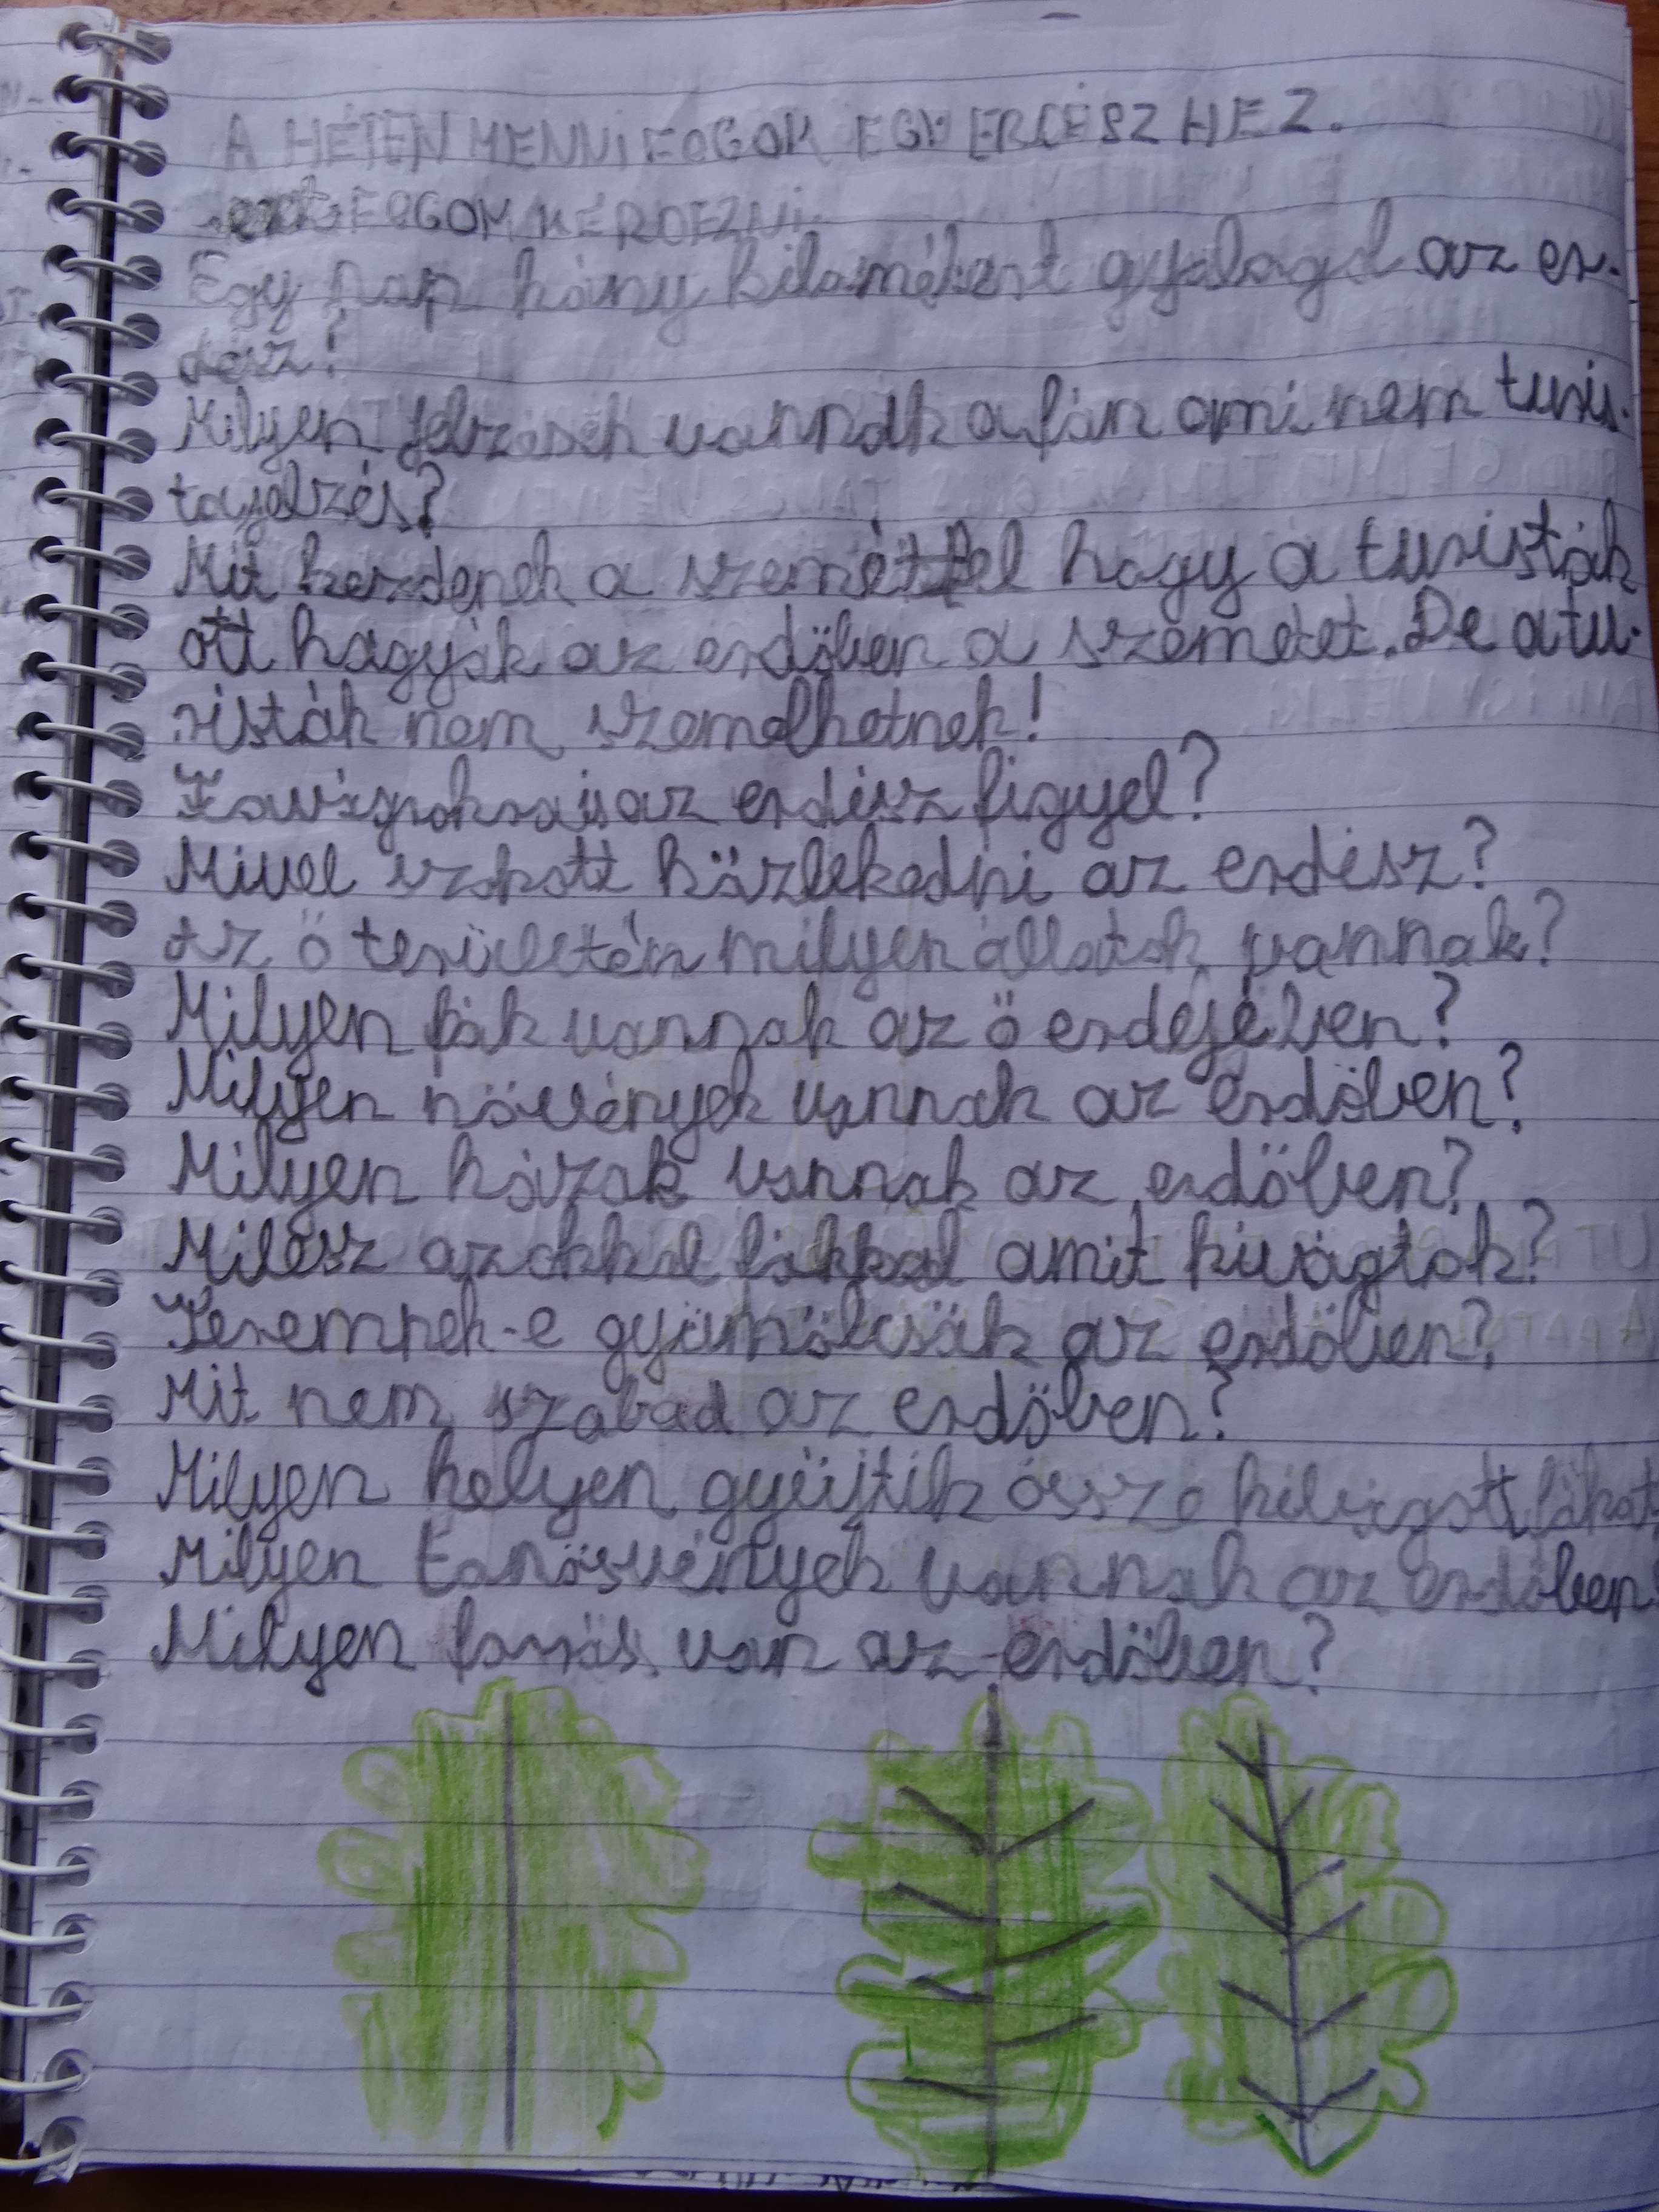 A HÉTEN MENNI FOGOK EGY ERDÉSZHEZ.
ezt FOGOM KÉRDEZNI:
Egy nap hány kilométert gyalogol az er-
dész?
Milyen jelzések vannak a fán ami nem turis-
tajelzés?
Mit kezdenek a szeméttel hogy a turisták
ott hagyják az erdőben a szemetet. De a tu-
risták nem szemelhetnek!
az erdész figyel?
Mivel szokott közlekedni az erdész?
Az ő területén milyen állatok vannak?
Milyen fák vannak az ő erdejében?
Milyen növények vannak az erdőben?
Milyen házak vannak az erdőben?
Milesz azokkal fákkal amit kivágtok?
Teremnek-e gyümölcsök az erdőben?
Mit nem szabad az erdőben?
Milyen helyen gyűjtik össze kivágott fákat
Milyen tanösvények vannak az erdőben?
Milyen forrás van az erdőben?